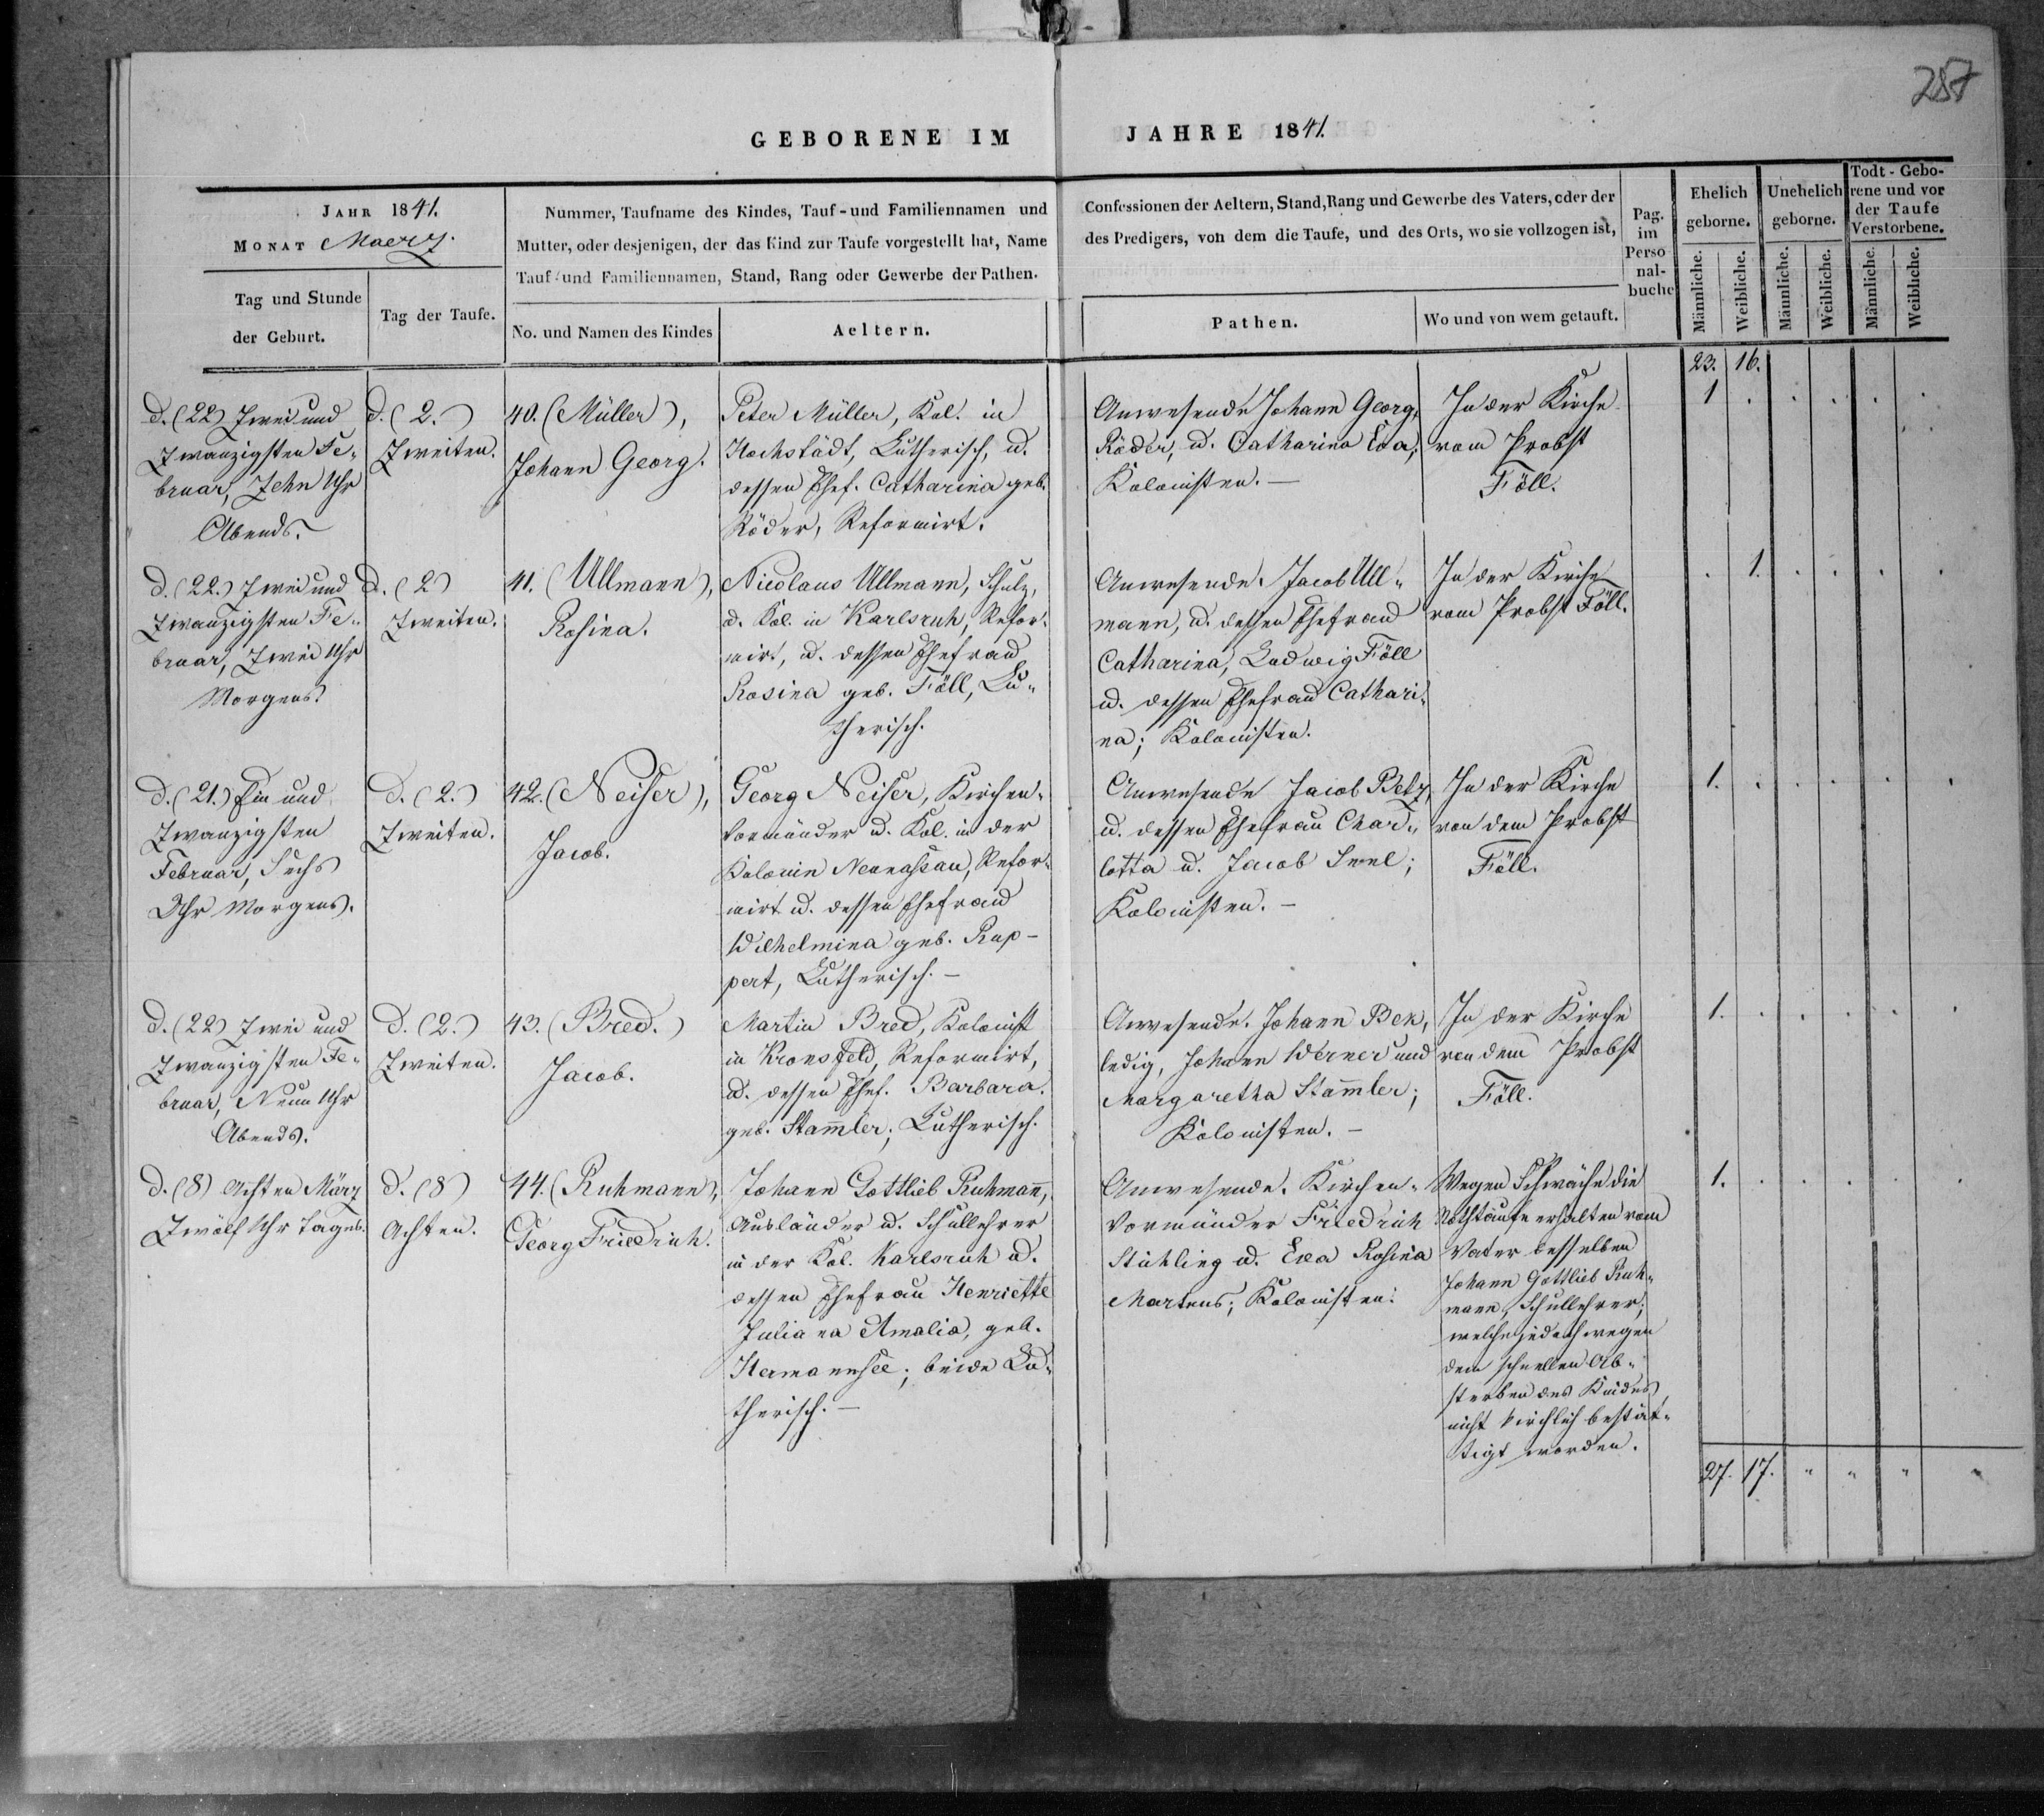 257
GEBORENE IM JAHRE 1841.
JAHR 1841.
MONAT Maerz.
Nummer, Taufname des Kindes, Tauf- und Familiennamen und
Mutter, oder desjenigen, der das Kind zur Taufe vorgestellt hat, Name
Tauf- und Familiennamen, Stand, Rang oder Gewerbe der Pathen.
Confessionen der Aeltern, Stand, Rang und Gewerbe des Vaters, oder der
des Predigers, von dem die Taufe, und des Orts, wo sie vollzogen ist,
Pag.
im
Perso
nal-
buche
Ehelich
geborne.
Unehelich
geborne.
Todt-Gebo-
rene und vor
der Taufe
Verstorbene.
Tag und Stunde
der Geburt.
Tag der Taufe.
No. und Namen des Kindes
Aeltern.
Pathen.
Wo und von wem getauft.
Männliche.
Weibliche.
Männliche.
Weibliche.
Männliche.
Weibliche.
23. 16.
d. (22) Zwei und
Zwanzigsten Fe-
bruar, Zehn Uhr
Abends.
d. (2.)
Zweiten.
40. (Müller),
Johann Georg.
Peter Müller, Kol. in
Hochstädt, Lutherisch, u.
dessen Ehef. Catharina geb.
Röder, Reformirt.
Anwesende Johann Georg
Röder, u. Catharina Eva,
Kolonisten. —
In der Kirche
vom Probst
Föll.
1 . . . . .
d. (22.) Zwei und
Zwanzigsten Fe-
bruar, Zwei Uhr
Morgens.
d. (2)
Zweiten.
41. (Ullmann),
Rosina.
Nicolaus Ullmann, Schulz,
u. Kol. in Karlsruh, Refor-
mirt, u. dessen Ehefrau
Rosina geb. Föll, Lu-
therisch.
Anwesende. Jacob Ull-
mann, u. dessen Ehefrau
Catharina, Ludwig Föll
u. dessen Ehefrau Cathari-
na; Kolonisten.
In der Kirche
vom Probst Föll.
. 1. . . . .
d. (21.) Ein und
Zwanzigsten
Februar, Sechs
Uhr Morgens.
d. (2.)
Zweiten.
42. (Neiser),
Jacob.
Georg Neiser, Kirchen-
vormünder u. Kol. in der
Kolonie Neunassau, Refor-
mirt u. dessen Ehefrau
Wilhelmina geb. Rup-
pert, Lutherisch. —
Anwesende Jacob Betz,
u. dessen Ehefrau Char-
lotta u. Jacob ;
Kolonisten. —
In der Kirche
von dem Probst
Föll.
1. . . . . .
d. (22) Zwei und
Zwanzigsten Fe-
bruar, Neun Uhr
Abends.
d. (2.)
Zweiten.
43. (Bred.)
Jacob.
Martin Bred, Kolonist
in Kronsfeld, Reformirt,
u. dessen Ehef. Barbara
geb. Stam̅ler; Lutherisch.
Anwesende. Johann Bek,
ledig, Johann Werner und
Margaretha Stam̅ler;
Kolonisten. —
In der Kirche
von dem Probst
Föll.
1. . . . . .
d. (8) Achten März
Zwölf Uhr Tages.
d. (8)
Achten.
44. (Ruhmann),
Georg Friedrich.
Johann Gottlieb Ruhman̅,
Ausländer u. Schullehrer
in der Kol. Karlsruh u.
dessen Ehefrau Henriette
Juliana Amalia, geb.
Hermannsee; beide Lu-
therisch. —
Anwesende. Kirchen-
Vormünder Friedrich
Stühling u. Eva Rosina
Martens; Kolonisten.
Wegen Schwäche die
Nothtaufe erhalten vom
Vater desselben
Johann Gottlieb Ruh-
mann, Schullehrer;
welche jedoch wegen
dem schnellen Ab-
sterben des Kindes
nicht kirchlich bestät-
tigt worden.
1. . . . . .
27. 17. " " " "